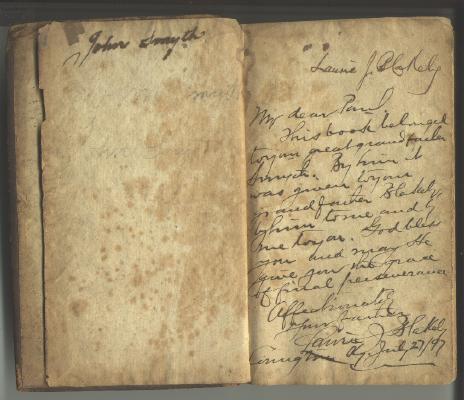 John Smyth
Laurie J. Blakely
My dear Paul,
This book belonged
to your great grandfather
Smyth. By him it
was given to your
grandfather Blakely,
by him to me and by
me to you. God bless
you and may He
give you the grace
of final perseverance
Affectionately
Your father
Laurie J. Blakely
Covington Ky July 27/97